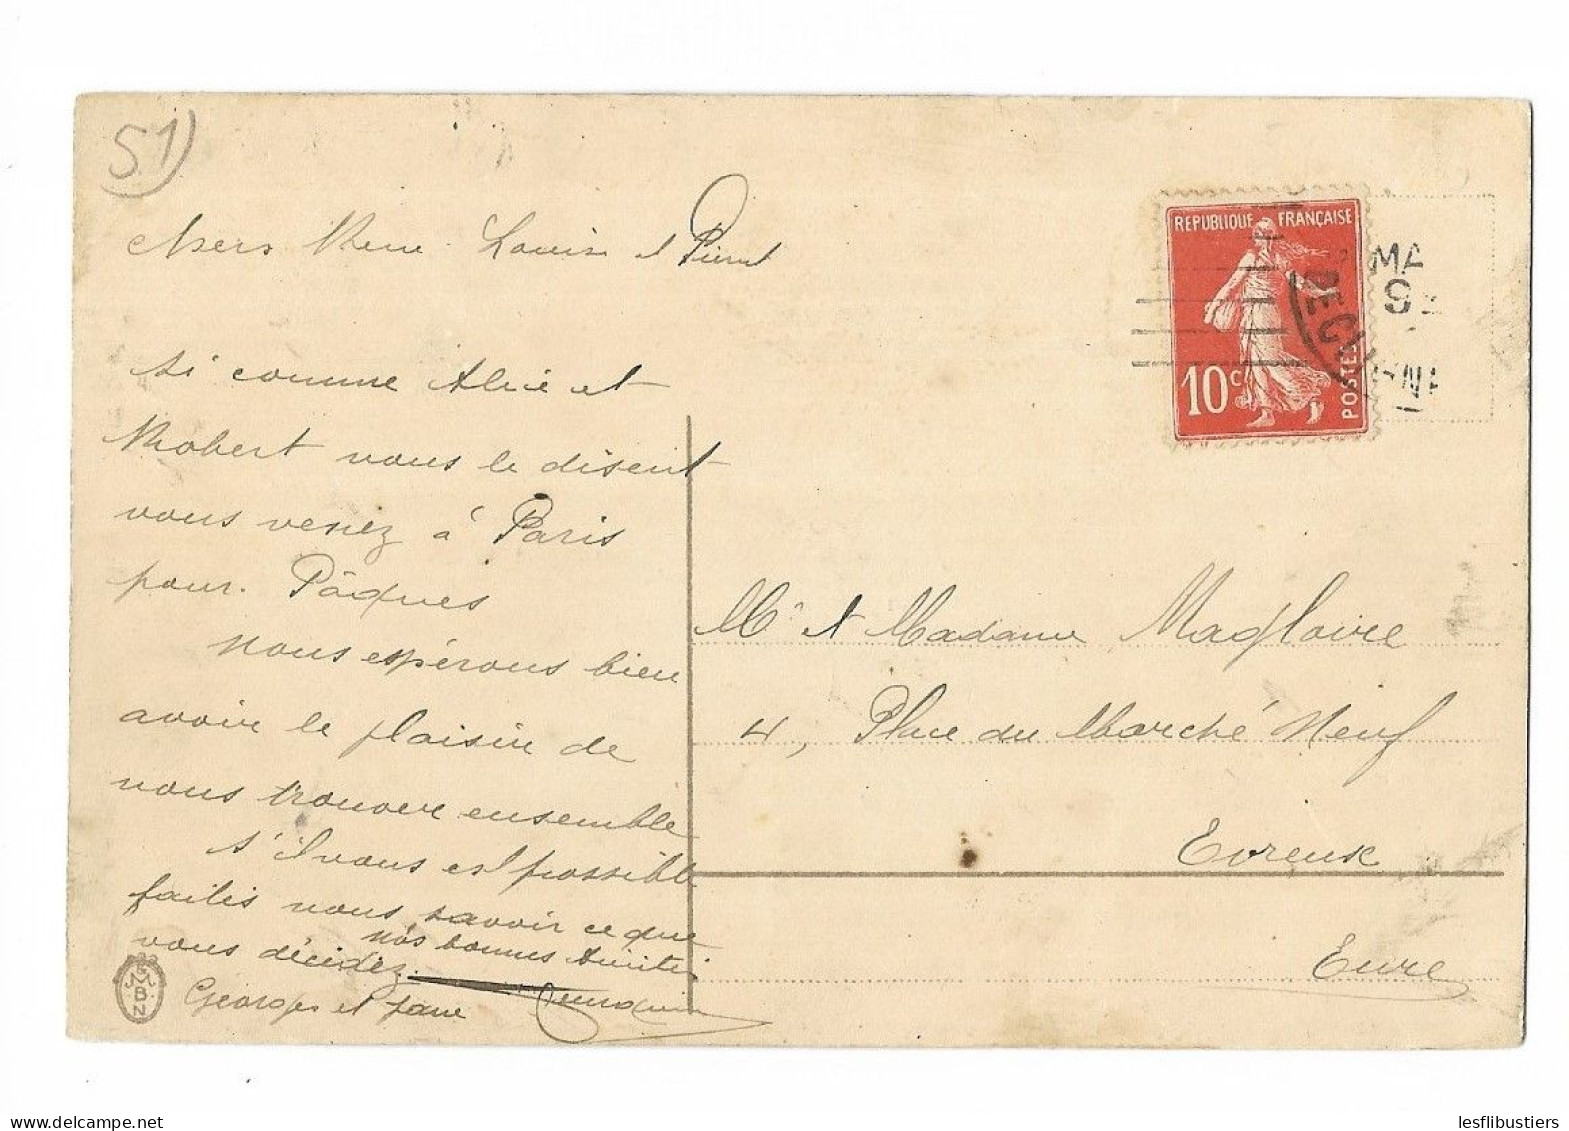 51)
Louise et Pierrot
Si comme Alice et
Robert vous le disent
vous venez à Paris
pour. Pâques
nous espérons bien
avoir le plaisir de
nous trouver ensemble
s'il vous est possible
faites nous savoir ce que
vous décidez.
nos bonnes Amitiés
Georges et Jane
REPUBLIQUE FRANÇAISE
10c
POSTES
MA
Mr et Madame Magloire
4, Place du Marché Neuf
Evreux
Eure
lesflibustiers